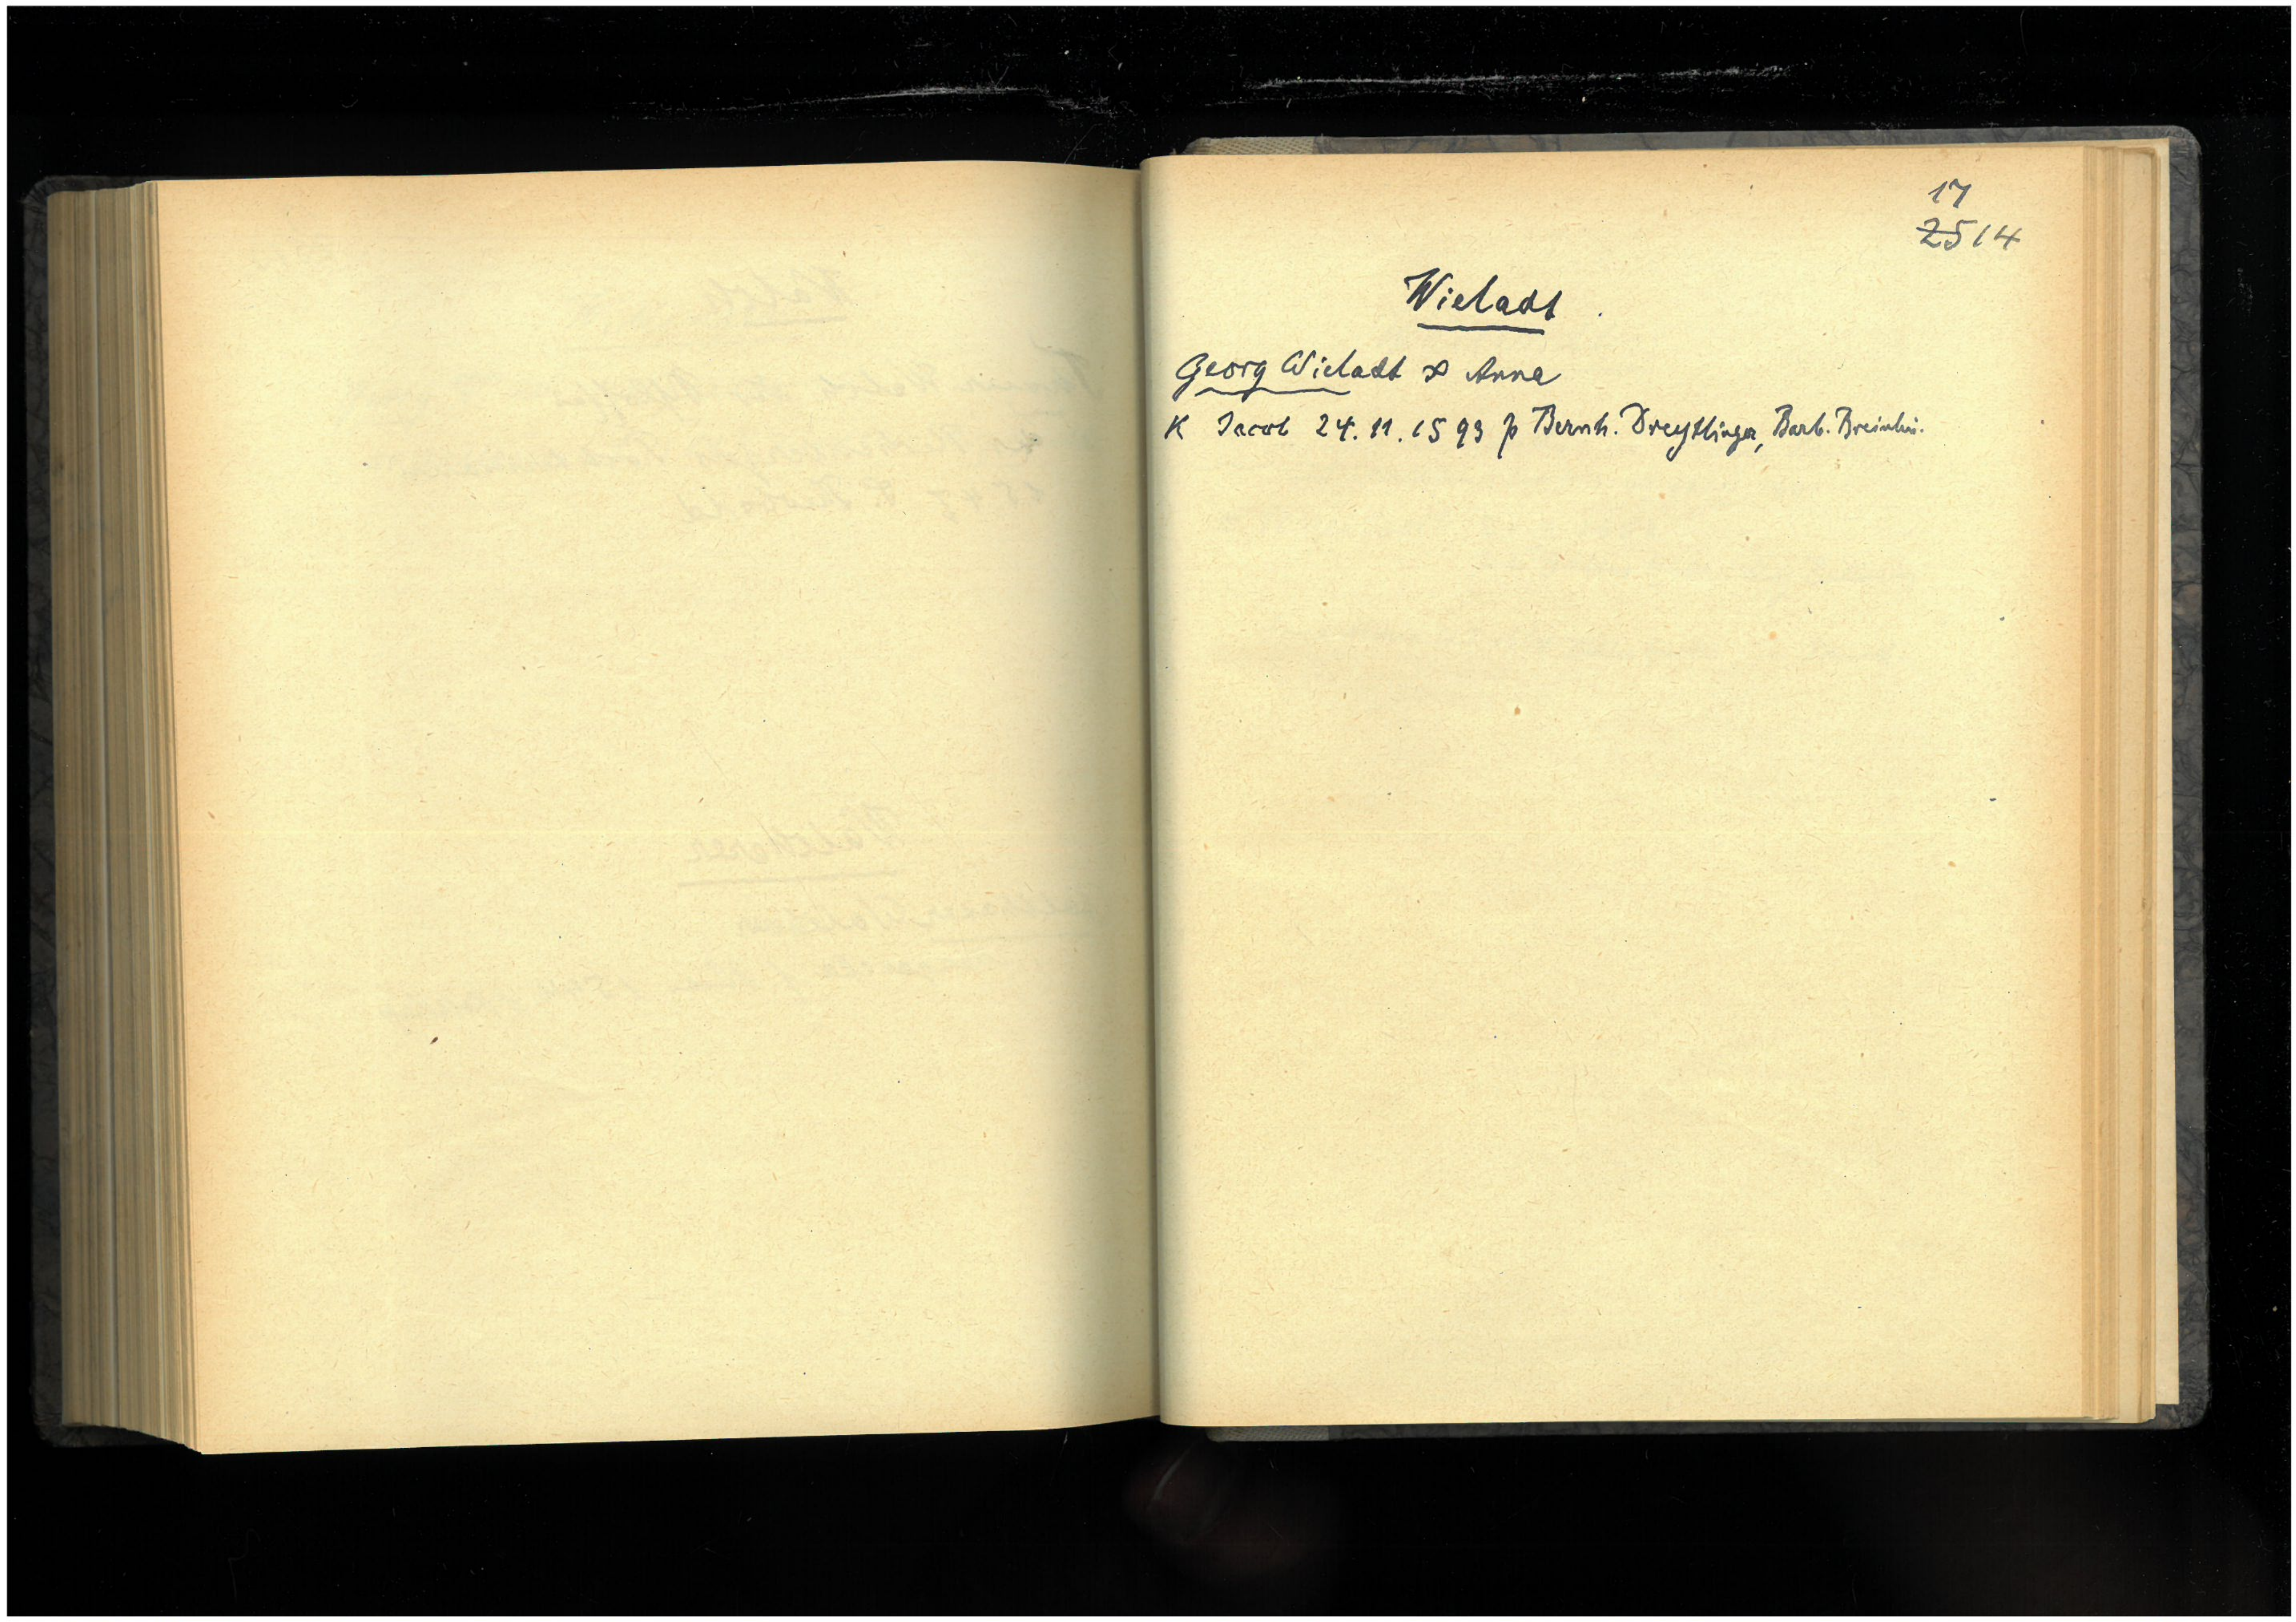 17
2514
Wieladt
Georg Wieladt ∞ Anna
K Jacob 24. 11. 1593 p Bernh. Dreyttinger, Barb. Breinlin.